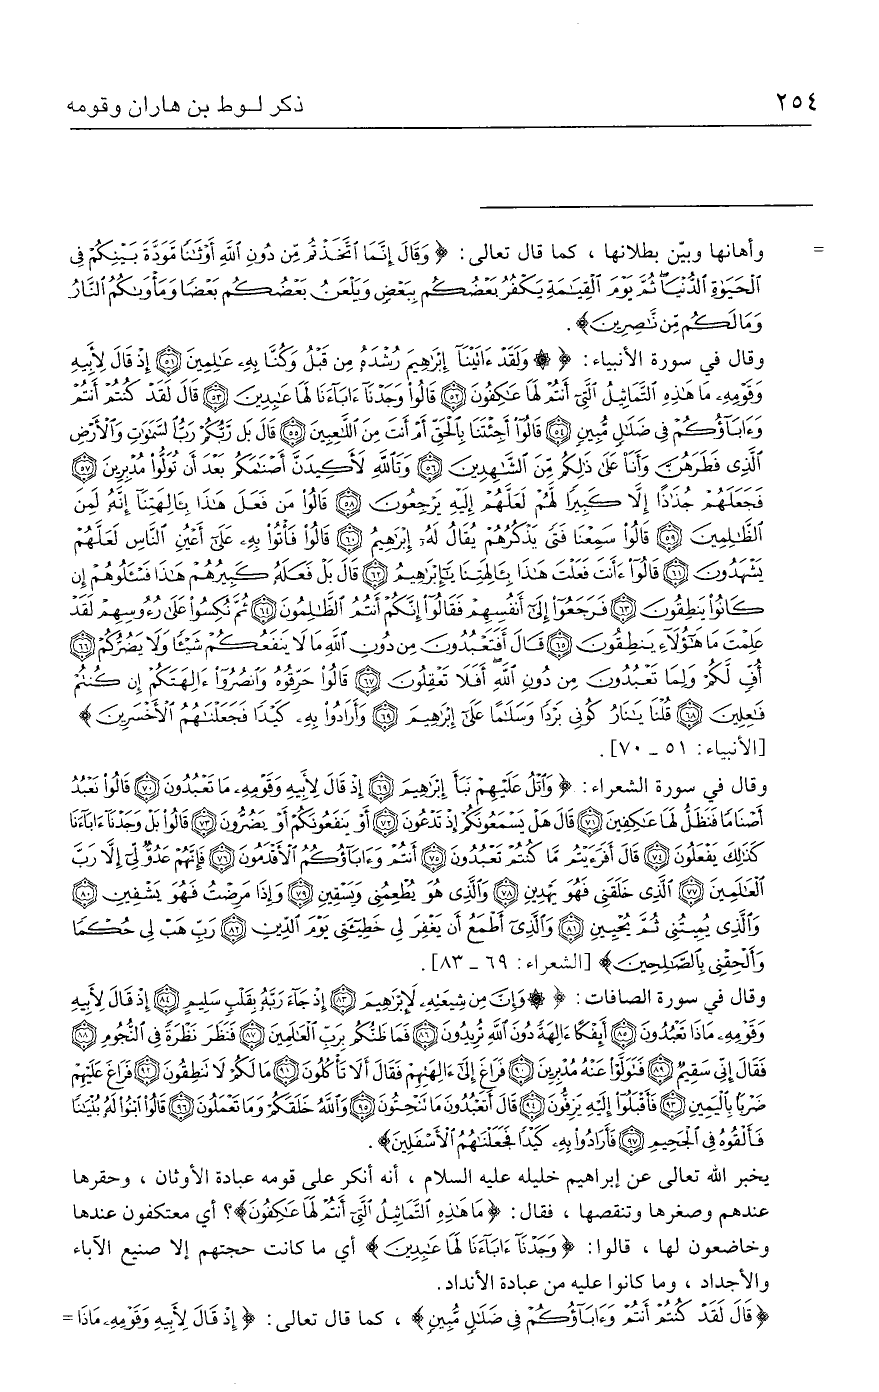 ٢٥٤ ذكر لـوط بن هاران وقومه
= وأهانها وبيّن بطلانها ، كما قال تعالى: ﴿ وَقَالَ إِنَّمَا ٱتَّخَذْتُم مِّن دُونِ ٱللَّهِ أَوْثَٰنًا مَّوَدَّةَ بَيْنِكُمْ فِى
ٱلْحَيَوٰةِ ٱلدُّنْيَا ۖ ثُمَّ يَوْمَ ٱلْقِيَٰمَةِ يَكْفُرُ بَعْضُكُم بِبَعْضٍ وَيَلْعَنُ بَعْضُكُم بَعْضًا وَمَأْوَىٰكُمُ ٱلنَّارُ
وَمَا لَكُم مِّن نَّٰصِرِينَ﴾ .
وقال في سورة الأنبياء: ﴿ ۞ وَلَقَدْ ءَاتَيْنَآ إِبْرَٰهِيمَ رُشْدَهُۥ مِن قَبْلُ وَكُنَّا بِهِۦ عَٰلِمِينَ ٥١ إِذْ قَالَ لِأَبِيهِ
وَقَوْمِهِۦ مَا هَٰذِهِ ٱلتَّمَاثِيلُ ٱلَّتِىٓ أَنتُمْ لَهَا عَٰكِفُونَ ٥٢ قَالُوا۟ وَجَدْنَآ ءَابَآءَنَا لَهَا عَٰبِدِينَ ٥٣ قَالَ لَقَدْ كُنتُمْ أَنتُمْ
وَءَابَآؤُكُمْ فِى ضَلَٰلٍ مُّبِينٍ ٥٤ قَالُوٓا۟ أَجِئْتَنَا بِٱلْحَقِّ أَمْ أَنتَ مِنَ ٱللَّٰعِبِينَ ٥٥ قَالَ بَل رَّبُّكُمْ رَبُّ ٱلسَّمَٰوَٰتِ وَٱلْأَرْضِ
ٱلَّذِى فَطَرَهُنَّ وَأَنَا۠ عَلَىٰ ذَٰلِكُم مِّنَ ٱلشَّٰهِدِينَ ٥٦ وَتَٱللَّهِ لَأَكِيدَنَّ أَصْنَٰمَكُم بَعْدَ أَن تُوَلُّوا۟ مُدْبِرِينَ ٥٧
فَجَعَلَهُمْ جُذَٰذًا إِلَّا كَبِيرًا لَّهُمْ لَعَلَّهُمْ إِلَيْهِ يَرْجِعُونَ ٥٨ قَالُوا۟ مَن فَعَلَ هَٰذَا بِـَٔالِهَتِنَآ إِنَّهُۥ لَمِنَ
ٱلظَّٰلِمِينَ ٥٩ قَالُوا۟ سَمِعْنَا فَتًى يَذْكُرُهُمْ يُقَالُ لَهُۥٓ إِبْرَٰهِيمُ ٦٠ قَالُوا۟ فَأْتُوا۟ بِهِۦ عَلَىٰٓ أَعْيُنِ ٱلنَّاسِ لَعَلَّهُمْ
يَشْهَدُونَ ٦١ قَالُوٓا۟ ءَأَنتَ فَعَلْتَ هَٰذَا بِـَٔالِهَتِنَا يَٰٓإِبْرَٰهِيمُ ٦٢ قَالَ بَلْ فَعَلَهُۥ كَبِيرُهُمْ هَٰذَا فَسْـَٔلُوهُمْ إِن
كَانُوا۟ يَنطِقُونَ ٦٣ فَرَجَعُوٓا۟ إِلَىٰٓ أَنفُسِهِمْ فَقَالُوٓا۟ إِنَّكُمْ أَنتُمُ ٱلظَّٰلِمُونَ ٦٤ ثُمَّ نُكِسُوا۟ عَلَىٰ رُءُوسِهِمْ لَقَدْ
عَلِمْتَ مَا هَٰٓؤُلَآءِ يَنطِقُونَ ٦٥ قَالَ أَفَتَعْبُدُونَ مِن دُونِ ٱللَّهِ مَا لَا يَنفَعُكُمْ شَيْـًٔا وَلَا يَضُرُّكُمْ ٦٦
أُفٍّ لَّكُمْ وَلِمَا تَعْبُدُونَ مِن دُونِ ٱللَّهِ ۖ أَفَلَا تَعْقِلُونَ ٦٧ قَالُوا۟ حَرِّقُوهُ وَٱنصُرُوٓا۟ ءَالِهَتَكُمْ إِن كُنتُمْ
فَٰعِلِينَ ٦٨ قُلْنَا يَٰنَارُ كُونِى بَرْدًا وَسَلَٰمًا عَلَىٰٓ إِبْرَٰهِيمَ ٦٩ وَأَرَادُوا۟ بِهِۦ كَيْدًا فَجَعَلْنَٰهُمُ ٱلْأَخْسَرِينَ ﴾
[الأنبياء: ٥١ ـ ٧٠] .
وقال في سورة الشعراء: ﴿ وَٱتْلُ عَلَيْهِمْ نَبَأَ إِبْرَٰهِيمَ ٦٩ إِذْ قَالَ لِأَبِيهِ وَقَوْمِهِۦ مَا تَعْبُدُونَ ٧٠ قَالُوا۟ نَعْبُدُ
أَصْنَامًا فَنَظَلُّ لَهَا عَٰكِفِينَ ٧١ قَالَ هَلْ يَسْمَعُونَكُمْ إِذْ تَدْعُونَ ٧٢ أَوْ يَنفَعُونَكُمْ أَوْ يَضُرُّونَ ٧٣ قَالُوا۟ بَلْ وَجَدْنَآ ءَابَآءَنَا
كَذَٰلِكَ يَفْعَلُونَ ٧٤ قَالَ أَفَرَءَيْتُم مَّا كُنتُمْ تَعْبُدُونَ ٧٥ أَنتُمْ وَءَابَآؤُكُمُ ٱلْأَقْدَمُونَ ٧٦ فَإِنَّهُمْ عَدُوٌّ لِّىٓ إِلَّا رَبَّ
ٱلْعَٰلَمِينَ ٧٧ ٱلَّذِى خَلَقَنِى فَهُوَ يَهْدِينِ ٧٨ وَٱلَّذِى هُوَ يُطْعِمُنِى وَيَسْقِينِ ٧٩ وَإِذَا مَرِضْتُ فَهُوَ يَشْفِينِ ٨٠
وَٱلَّذِى يُمِيتُنِى ثُمَّ يُحْيِينِ ٨١ وَٱلَّذِىٓ أَطْمَعُ أَن يَغْفِرَ لِى خَطِيٓـَٔتِى يَوْمَ ٱلدِّينِ ٨٢ رَبِّ هَبْ لِى حُكْمًا
وَأَلْحِقْنِى بِٱلصَّٰلِحِينَ﴾ [الشعراء: ٦٩ ـ ٨٣] .
وقال في سورة الصافات: ﴿ ۞ وَإِنَّ مِن شِيعَتِهِۦ لَإِبْرَٰهِيمَ ٨٣ إِذْ جَآءَ رَبَّهُۥ بِقَلْبٍ سَلِيمٍ ٨٤ إِذْ قَالَ لِأَبِيهِ
وَقَوْمِهِۦ مَاذَا تَعْبُدُونَ ٨٥ أَئِفْكًا ءَالِهَةً دُونَ ٱللَّهِ تُرِيدُونَ ٨٦ فَمَا ظَنُّكُم بِرَبِّ ٱلْعَٰلَمِينَ ٨٧ فَنَظَرَ نَظْرَةً فِى ٱلنُّجُومِ ٨٨
فَقَالَ إِنِّى سَقِيمٌ ٨٩ فَتَوَلَّوْا۟ عَنْهُ مُدْبِرِينَ ٩٠ فَرَاغَ إِلَىٰٓ ءَالِهَتِهِمْ فَقَالَ أَلَا تَأْكُلُونَ ٩١ مَا لَكُمْ لَا تَنطِقُونَ ٩٢ فَرَاغَ عَلَيْهِمْ
ضَرْبًۢا بِٱلْيَمِينِ ٩٣ فَأَقْبَلُوٓا۟ إِلَيْهِ يَزِفُّونَ ٩٤ قَالَ أَتَعْبُدُونَ مَا تَنْحِتُونَ ٩٥ وَٱللَّهُ خَلَقَكُمْ وَمَا تَعْمَلُونَ ٩٦ قَالُوا۟ ٱبْنُوا۟ لَهُۥ بُنْيَٰنًا
فَأَلْقُوهُ فِى ٱلْجَحِيمِ ٩٧ فَأَرَادُوا۟ بِهِۦ كَيْدًا فَجَعَلْنَٰهُمُ ٱلْأَسْفَلِينَ﴾ .
يخبر الله تعالى عن إبراهيم خليله عليه السلام ، أنه أنكر على قومه عبادة الأوثان ، وحقرها
عندهم وصغرها وتنقصها ، فقال: ﴿ مَا هَٰذِهِ ٱلتَّمَاثِيلُ ٱلَّتِىٓ أَنتُمْ لَهَا عَٰكِفُونَ﴾؟ أي معتكفون عندها
وخاضعون لها ، قالوا: ﴿ وَجَدْنَآ ءَابَآءَنَا لَهَا عَٰبِدِينَ ﴾ أي ما كانت حجتهم إلا صنيع الآباء
والأجداد ، وما كانوا عليه من عبادة الأنداد.
﴿قَالَ لَقَدْ كُنتُمْ أَنتُمْ وَءَابَآؤُكُمْ فِى ضَلَٰلٍ مُّبِينٍ ﴾ ، كما قال تعالى: ﴿ إِذْ قَالَ لِأَبِيهِ وَقَوْمِهِۦ مَاذَا =